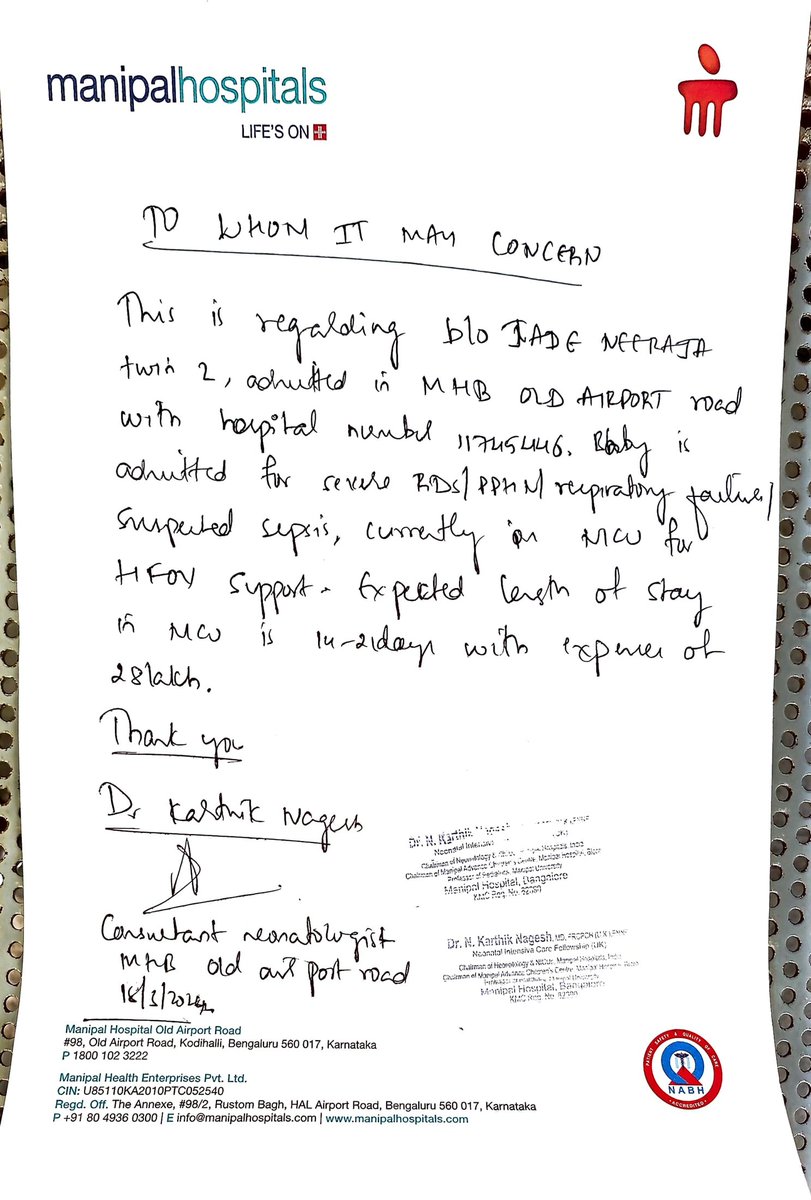 manipalhospitals
LIFE'S ON
TO WHOM IT MAY CONCERN
This is regarding b/o JADE NEERAJA
twin 2, admitted in MHB OLD AIRPORT road
with hospital number 11745446. Baby is
admitted for severe RDS/PPHN/respiratory failure/
suspected sepsis, currently in NICU for
HFOV support. Expected length of stay
in NICU is 14-21days with expense of
28 lakh.
Thank you
Dr Karthik Nagesh
Dr. N. Karthik Nagesh
Neonatal Intensive
Chairman of Manipal Advance Children's Centre, Manipal Hospital,
Professor of Pediatrics, Manipal University
Manipal Hospital, Bangalore
KMC Reg. No.
Consultant neonatologist
MHB old air port road
Dr. N. Karthik Nagesh, MD, FRCPCH
Neonatal Intensive Care Fellowship (UK)
Chairman of Neonatology & NICUs, Manipal Hospitals, India
Chairman of Manipal Advance Children's Centre, Manipal Hospital,
Manipal Hospital, Bangalore
KMC Reg. No.
Manipal Hospital Old Airport Road
#98, Old Airport Road, Kodihalli, Bengaluru 560 017, Karnataka
P 1800 102 3222
Manipal Health Enterprises Pvt. Ltd.
CIN: U85110KA2010PTC052540
Regd. Off. The Annexe, #98/2, Rustom Bagh, HAL Airport Road, Bengaluru 560 017, Karnataka
P +91 80 4936 0300 | E info@manipalhospitals.com | www.manipalhospitals.com
PATIENT SAFETY & QUALITY OF CARE
NABH
ACCREDITED